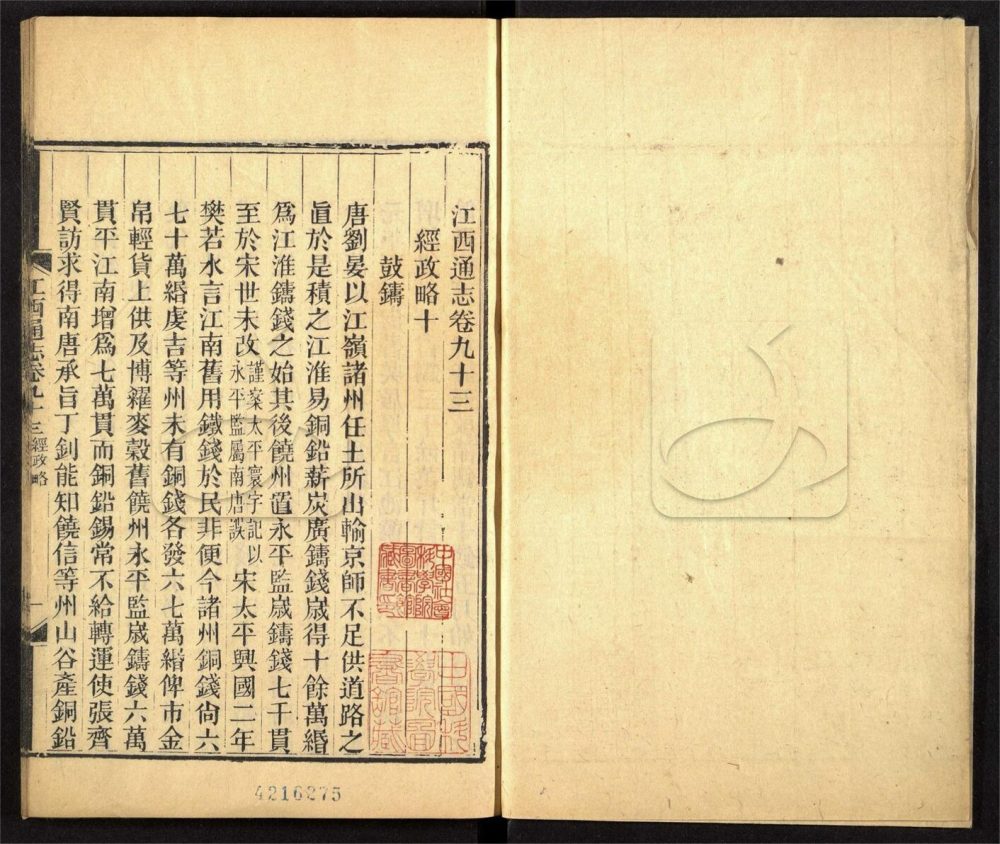 江西通志卷九十三
經政略十
鼓鑄
唐劉晏以江嶺諸州任土所出輸京師不足供道路之
直於是積之江淮易銅鉛薪炭廣鑄錢歲得十餘萬緡
爲江淮鑄錢之始其後饒州置永平監歲鑄錢七千貫
至於宋世未改謹案太平寰宇記以永平監屬南唐誤宋太平興國二年
樊若水言江南舊用鐵錢於民非便今諸州銅錢尙六
七十萬緡虔吉等州未有銅錢各發六七萬緡俾市金
帛輕貨上供及博糴麥穀舊饒州永平監歲鑄錢六萬
貫平江南增爲七萬貫而銅鉛錫常不給轉運使張齊
賢訪求得南唐承旨丁釗能知饒信等州山谷產銅鉛
江西通志卷九十三 經政略 一
中國社會
科學院
圖書館
藏書印
中國科
學院圖
書館藏
4216275